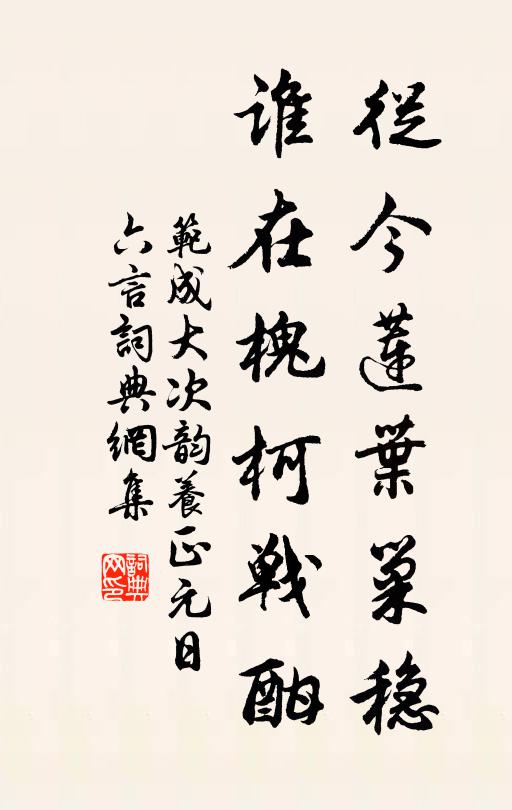 從今蓮葉巢穩
誰在槐柯戰酣
範成大次韵養正元日
六言詞典網集
詞典
网印